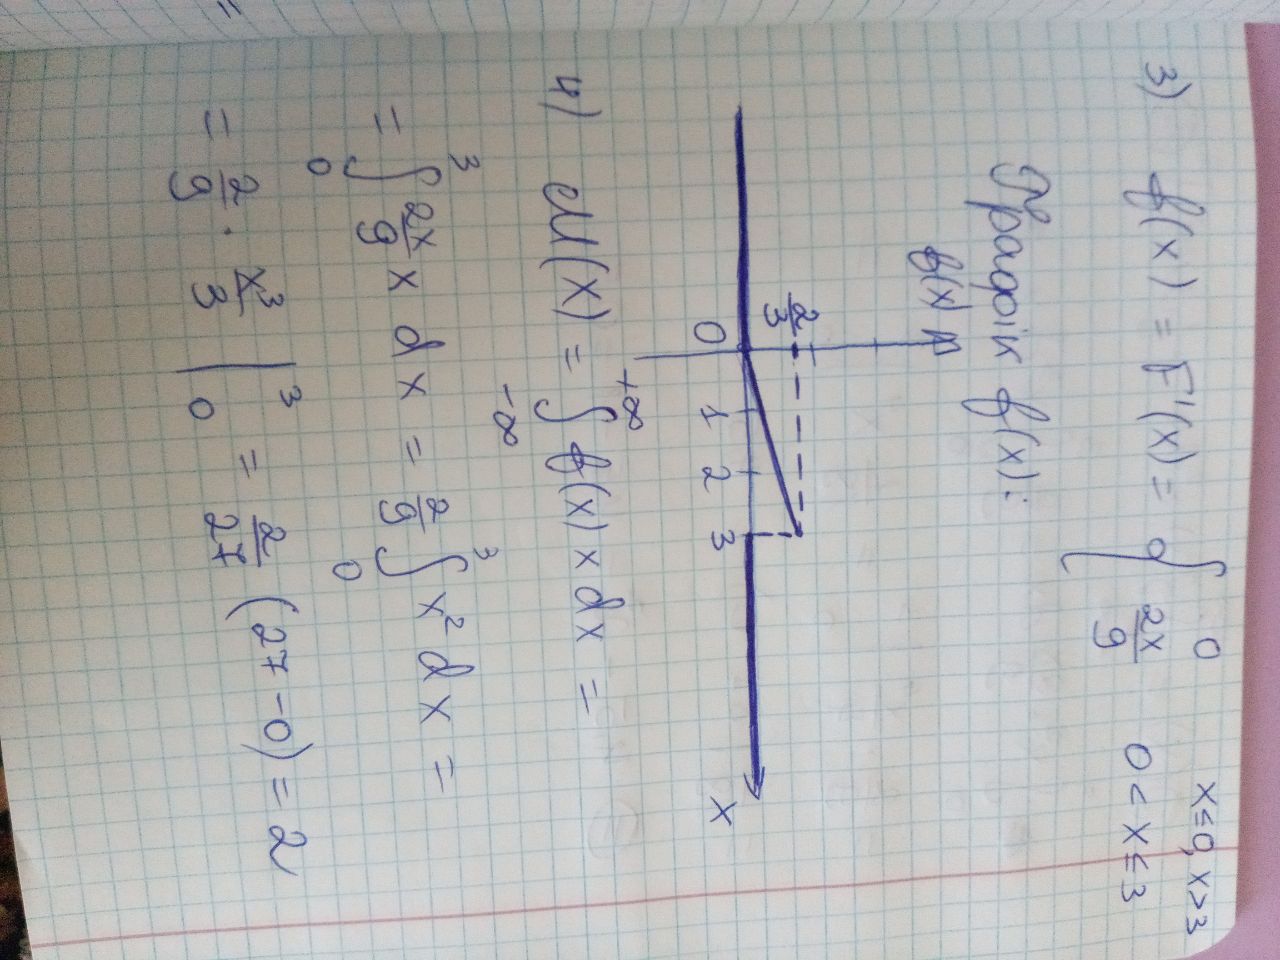 3) f(x) = F'(x) = { 0 x ≤ 0, x > 3
2x/9 0 < x ≤ 3
Графік f(x):
f(x)
2/3
0 1 2 3 x
4) M(X) = ∫_{-∞}^{+∞} f(x) x dx =
= ∫_0^3 2x/9 x dx = 2/9 ∫_0^3 x² dx =
= 2/9 · x³/3 |_0^3 = 2/27 (27 - 0) = 2
=